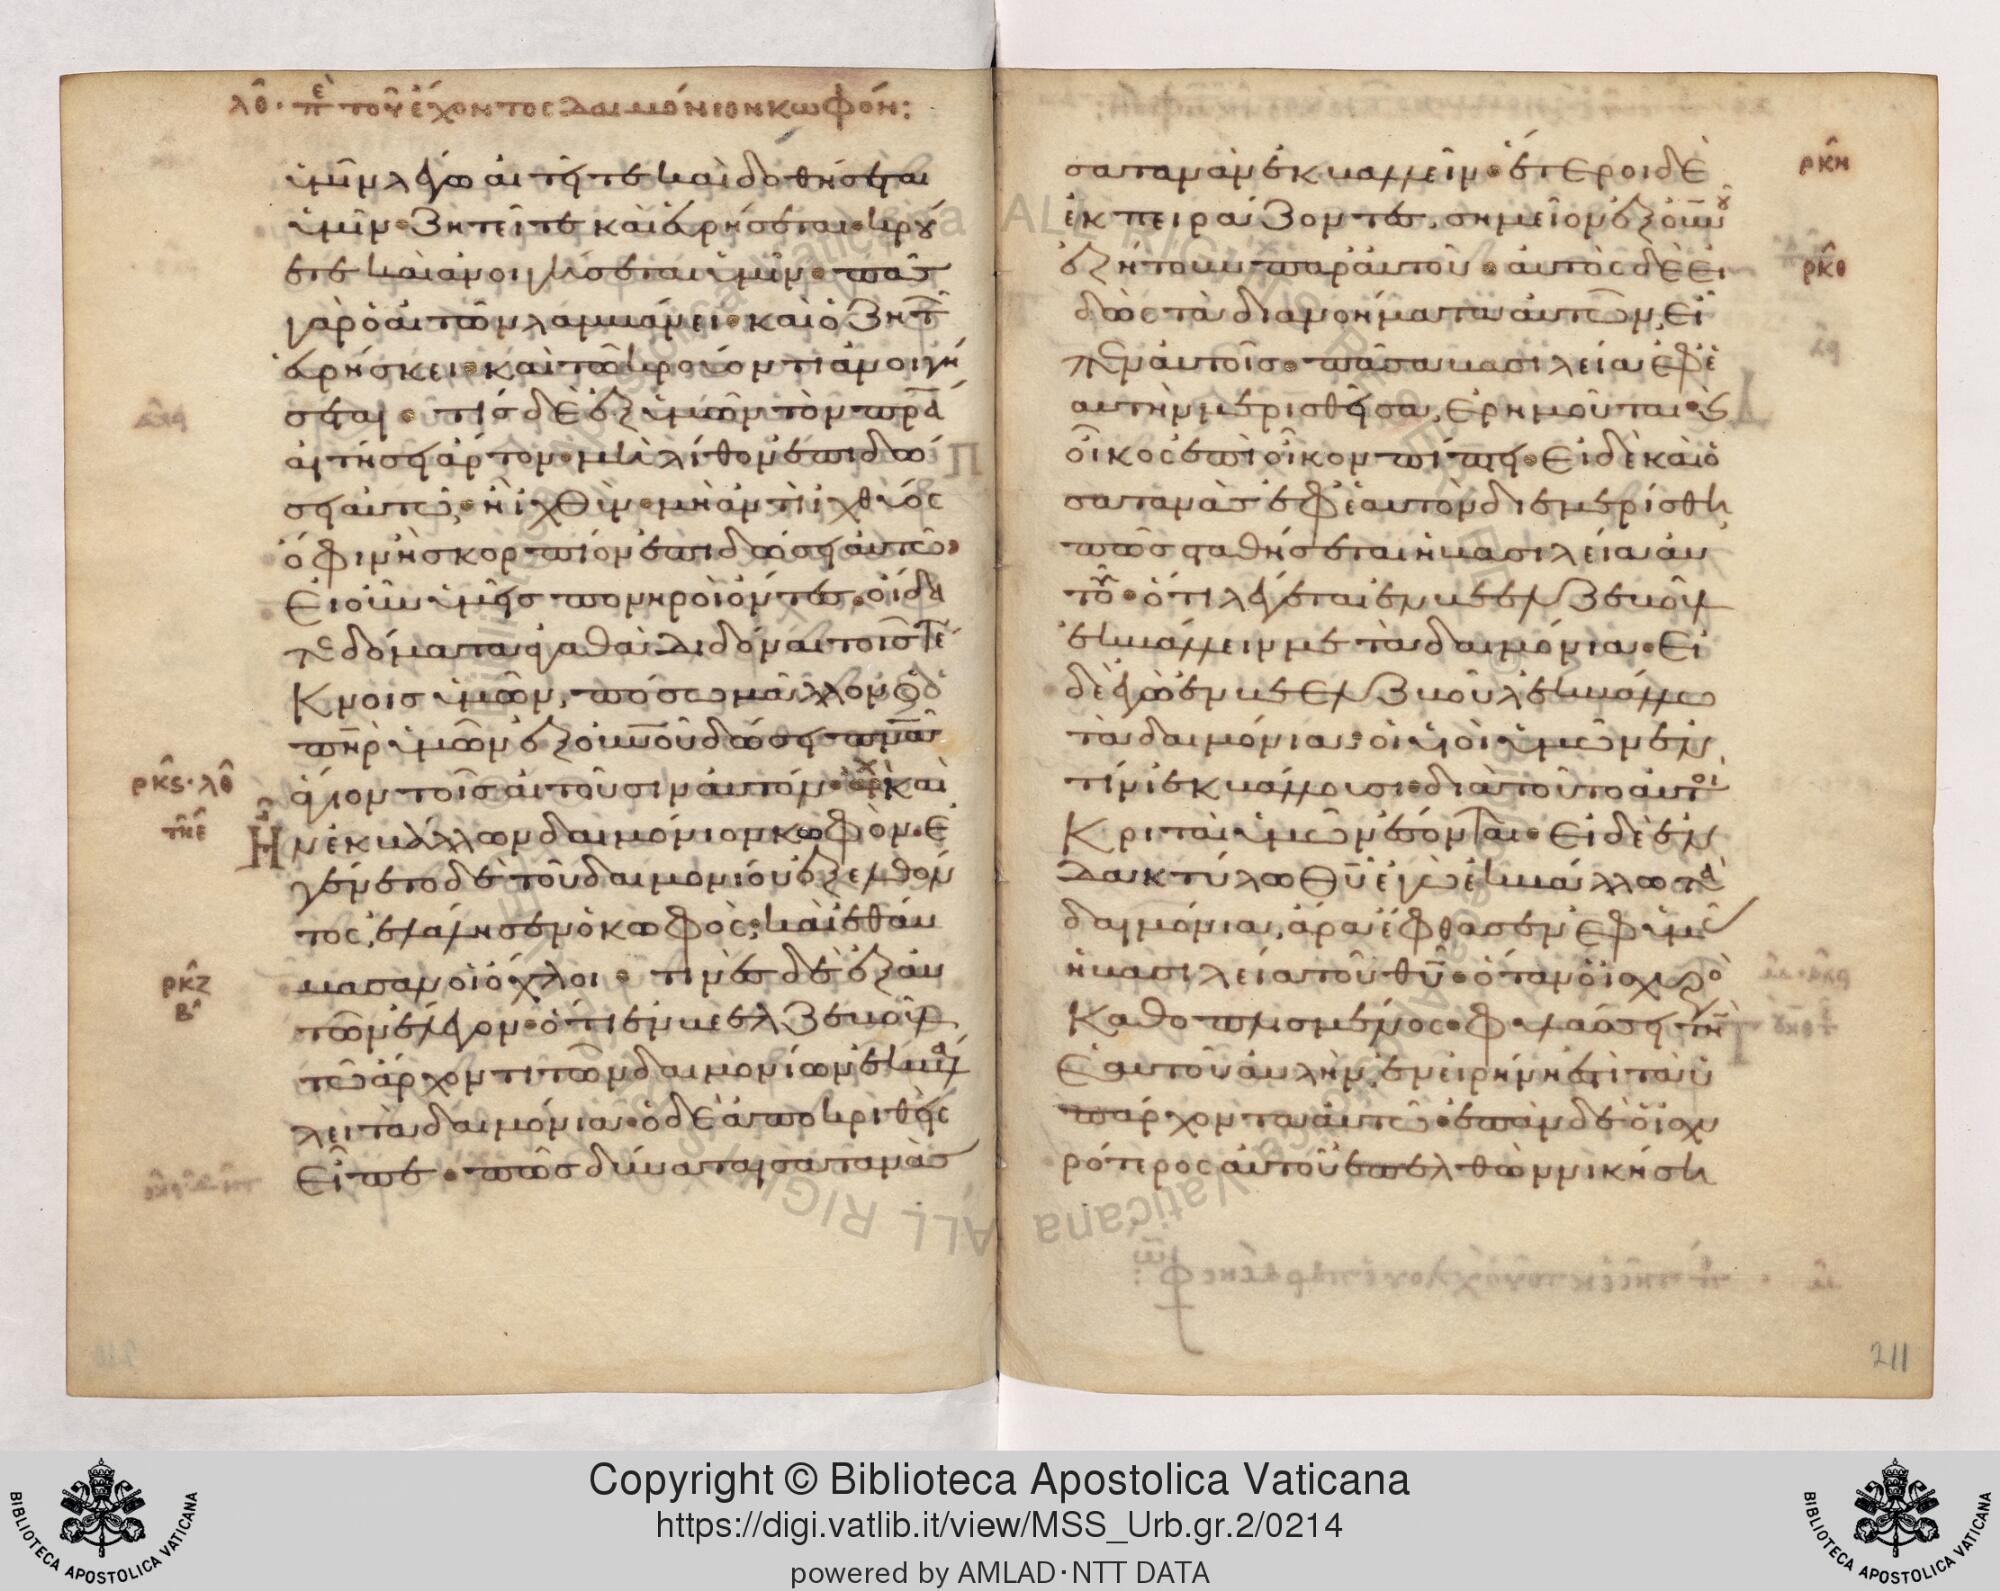 λθ · πε του έχοντος δαιμόνιον κωφόν :
ὑμῖν λέγω αἰτεῖτε καὶ δοθήσεται
ὑμῖν · ζητεῖτε καὶ εὑρήσεται · κρού
ετε καὶ ἀνοιγήσεται ὑμῖν · πᾶς
γὰρ ὁ αἰτῶν λαμβάνει · καὶ ὁ ζητῶ
εὑρήσκει · καὶ τῶ κρούοντι ἀνοιγή
σεται · τίς δὲ ἐξ ὑμῶν τὸν πρα
αἰτήσει ἄρτον · μὴ λίθον ἐπιδώ
σει αὐτῶ · ἢ ἰχθὺν · μὴ ἀντὶ ἰχθύος
ὄφιν ἢ σκορπίον ἐπιδώσει αὐτῶ ·
Εἰ οὖν ὑμεῖς πονηροὶ ὄντες · οἴδα
τε δόματα ἀγαθὰ διδόναι τοῖς τέ
κνοις ὑμῶν, πόσω μᾶλλον ὁ
πηρ ὑμῶν ἐξ οὐνοῦ δώσει πνα
ἅγιον τοῖς αἰτοῦσιν αὐτόν · καὶ
ρκς · λθ
τη ε
Ην ἐκβάλλων δαιμόνιον κωφὸν · ἐ
γένετο δὲ τοῦ δαιμονίου ἐξελθόν
τος, ἐλάλησεν ὁ κωφὸς · καὶ ἐθαύ
ρκζ
β
μασαν οἱ ὄχλοι · τινὲς δὲ ἐξ αὐ
τῶν ἔλεγον · ὅτι ἐν βεελζεβοὺλ
τῶ ἄρχοντι τῶν δαιμονίων ἐκβάλ
λει τὰ δαιμόνια · ὁ δὲ ἀποκριθεὶς
εἶπε · πῶς δύναται σατανᾶς
σατανᾶν ἐκβάλλειν · ἕτεροι δὲ
ρκη
ἐκπειράζοντες, σημεῖον ἐξ οὐνου
ἐζήτουν παρ αὐτοῦ · αὐτὸς δὲ εἰ
ρκθ
δὼς τὰ διανοήματα αὐτῶν, εἶ
πεν αὐτοῖς · πᾶσα βασιλεία ἐφ ἑ
αυτὴν μερισθεῖσα, ἐρημοῦται · ϛ
οἶκος ἐπὶ οἶκον πίπτει · Εἰ δὲ καὶ ὁ
σατανᾶς ἐφ ἑαυτὸν διεμερίσθη
πῶς σταθήσεται ἡ βασιλεία αὐ
τοῦ · ὅτι λέγεται ἐν βεελζεβοὺλ
ἐκβάλλειν με τὰ δαιμόνια · Εἰ
δὲ ἐγὼ ἐν βεελζεβοὺλ ἐκβάλλω
τὰ δαιμόνια · οἱ υἱοὶ ὑμῶν ἐν
τίνι ἐκβάλλουσι · διὰ τοῦτο αὐτοὶ
κριταὶ ὑμῶν ἔσονται · Εἰ δὲ ἐν
δακτύλω θυ ἐγὼ ἐκβάλλω τὰ
δαιμόνια, ἄρα ἔφθασεν ἐφ ὑμᾶς
ἡ βασιλεία τοῦ θυ · ὅταν ὁ ἰσχυρὸ
καθοπλισμένος · φυλάσσει τὴν
ἑαυτοῦ αὐλὴν, ἐν εἰρήνη ἐστὶ τὰ ὑ
πάρχοντα αὐτῶ · ἐπὰν δὲ ὁ ἰσχυ
ρότερος αὐτοῦ ἐπελθὼν νικήση
211
Copyright © Biblioteca Apostolica Vaticana
https://digi.vatlib.it/view/MSS_Urb.gr.2/0214
powered by AMLAD·NTT DATA
BIBLIOTECA APOSTOLICA VATICANA
BIBLIOTECA APOSTOLICA VATICANA